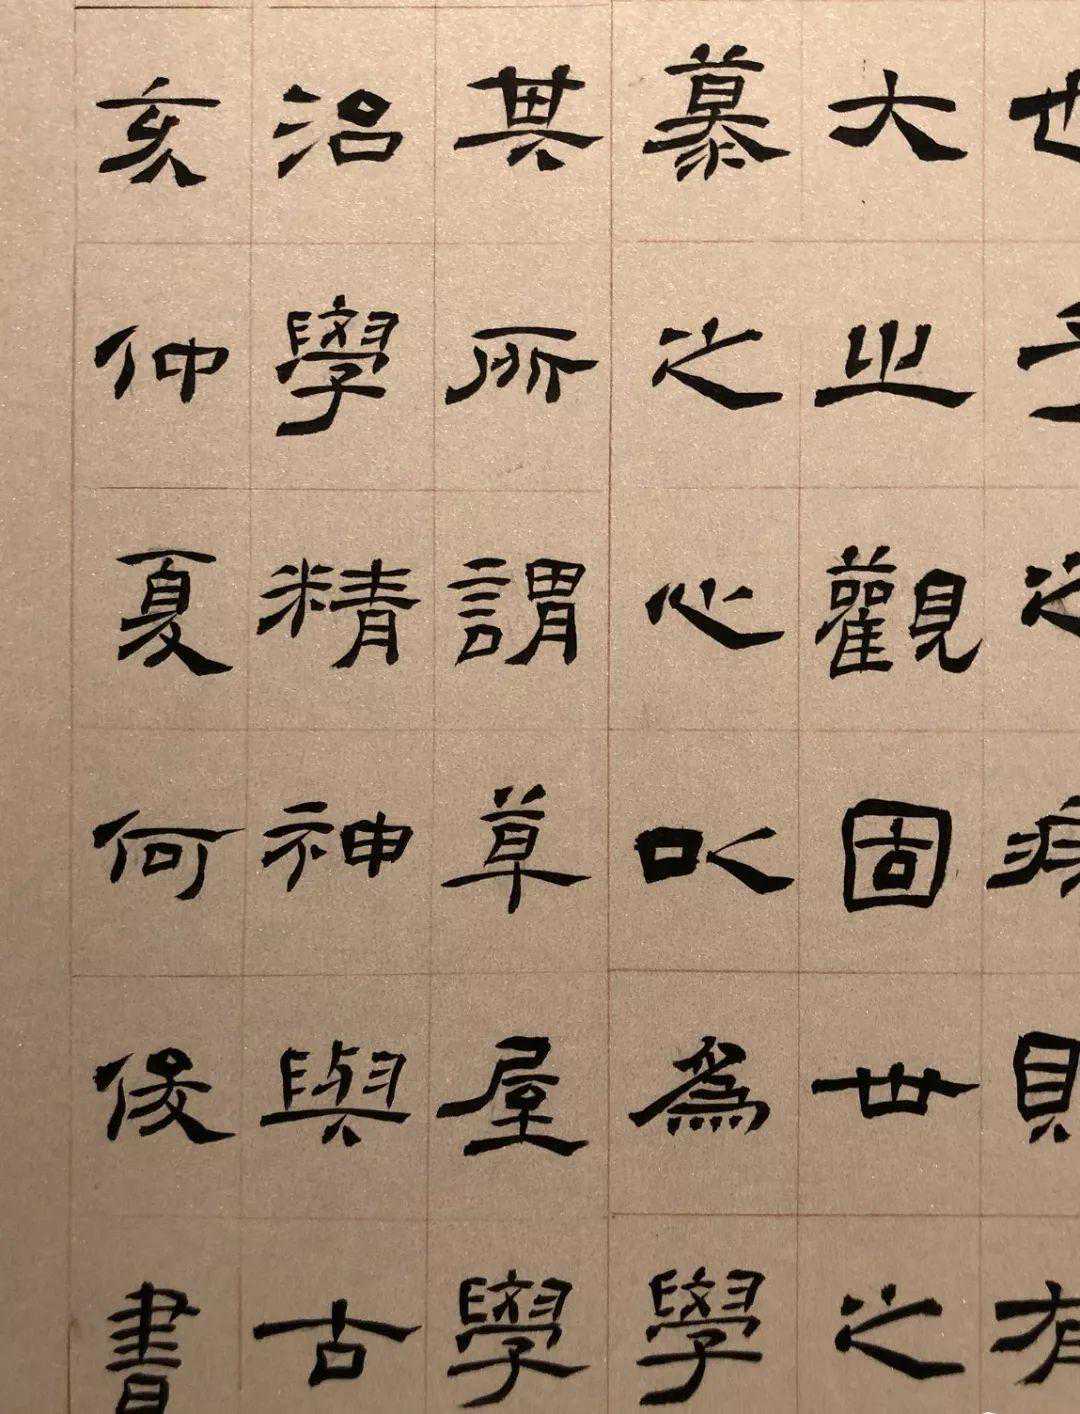 也之病有
大㞢觀固世之
慕之心㕥為學
其所謂草屋學
治學精神與古
亥仲夏何俊書